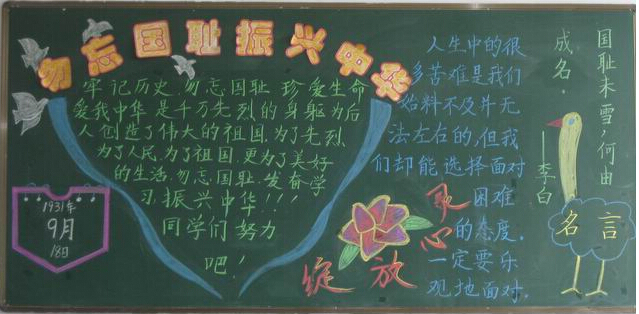 勿忘国耻振兴中华
牢记历史.勿忘国耻 珍爱生命
爱我中华是千万先烈的身躯为后
人创造了伟大的祖国.为了先烈.
为了人民.为了祖国.更为了美好
的生活.勿忘国耻.发奋学
习.振兴中华!!!
同学们努力
吧!
1931年
9月
18日
绽放
灵心
人生中的很
多苦难是我们
始料不及并无
法左右的,但我
们却能选择面对
困难
的态度.
一定要乐
观地面对.
国耻未雪,何由
成名。
——李白
名言